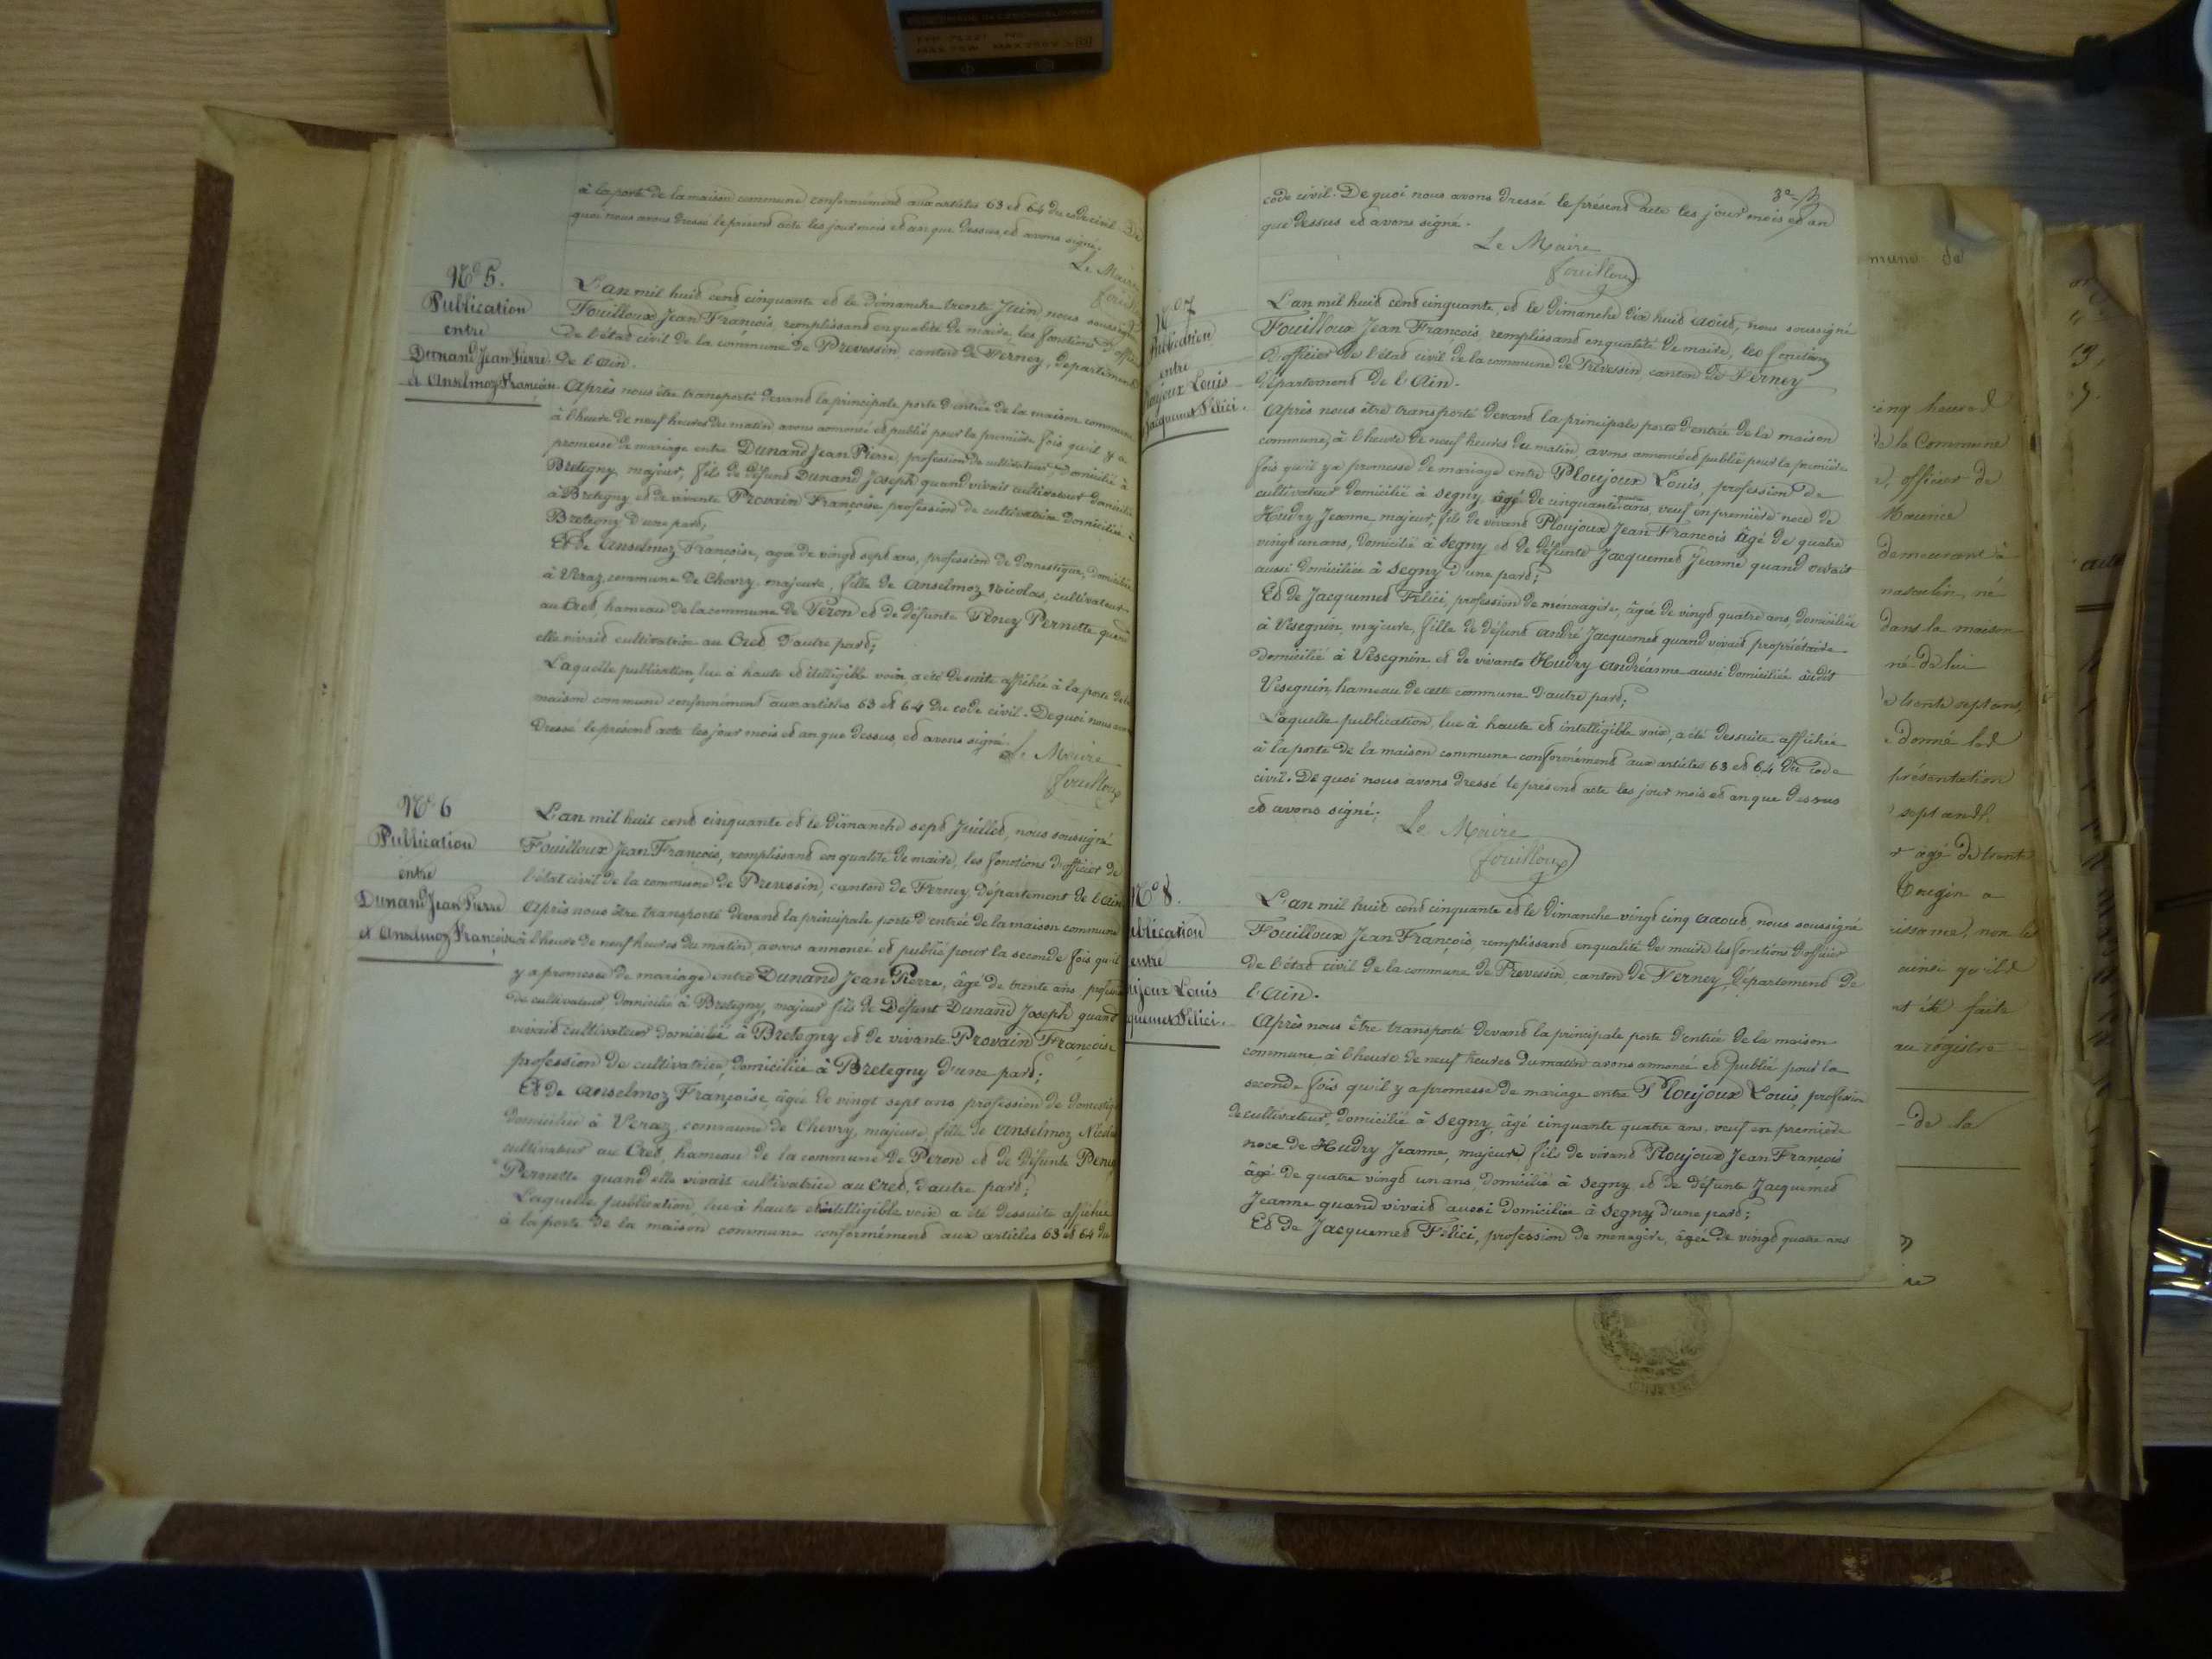 à la porte de la maison commune conformément aux articles 63 et 64 du code civil. De
quoi nous avons dressé le présent acte les jour mois et an que dessus, et avons signé.
Le Maire
N° 5.
Publication
entre
Dunand Jean Pierre
et Anselmoz Françoise
L'an mil huit cent cinquante et le dimanche trente Juin, nous soussigné
Fouilloux Jean François, remplissant en qualité de maire, les fonctions d'officier
de l'état civil de la commune de Prevessin canton de Ferney, département
de l'Ain.
Après nous être transporté devant la principale porte d'entrée de la maison commune
à l'heure de neuf heures du matin avons annoncé et publié pour la première fois, qu'il y a
promesse de mariage entre Dunand Jean Pierre, profession de cultivateur domicilié à
Bretegny, majeur, fils de défunt Dunand Joseph quand vivait cultivateur domicilié
à Bretegny et de vivante Provain Françoise profession de cultivatrice domiciliée à
Bretegny d'une part;
Et de Anselmoz Françoise, agée de vingt sept ans, profession de domestique, domiciliée
à Véraz, commune de Chevry, majeure, fille de Anselmoz Nicolas, cultivateur
au Cret, hameau de la commune de Péron et de défunte Peney Pernette quand
elle vivait cultivatrice au Cret d'autre part;
Laquelle publication, lue à haute et itelligible voix, a été desuite affichée à la porte de la
maison commune conformément aux articles 63 et 64 du code civil. De quoi nous avons
dressé le présent acte les jour mois et an que dessus, et avons signé.
Le Maire
fouilloux
N° 6
Publication
entre
Dunand Jean Pierre
et Anselmoz Françoise
L'an mil huit cent cinquante et le dimanche sept Juillet, nous soussigné
Fouilloux Jean François, remplissant en qualité de maire, les fonctions d'officier de
l'état civil de la commune de Prevessin, canton de Ferney, département de l'Ain
Après nous être transporté devant la principale porte d'entrée de la maison commune
à l'heure de neuf heures du matin, avons annoncé et publié pour la seconde fois qu'il
y a promesse de mariage entre Dunand Jean Pierre, âgé de trente ans
de cultivateur domicilié à Bretegny, majeur fils de Défunt Dunand Joseph quand
vivait cultivateur domicilié à Bretegny et de vivante Provain Françoise
profession de cultivatrice, domiciliée à Bretegny d'une part;
Et de Anselmoz Françoise, âgée de vingt sept ans profession de domestique
domiciliée à Véraz, commune de Chevry, majeure, fille de Anselmoz Nicolas
cultivateur au Cret, hameau de la commune de Péron et de défunte Peney
Pernette quand elle vivait cultivatrice au Cret, d'autre part;
Laquelle publication, lue à haute et intelligible voix a été dessuite affichée
à la porte de la maison commune conformément aux articles 63 et 64 du
code civil. De quoi nous avons dressé le présent acte les jour mois et an
que dessus et avons signé.
Le Maire
fouilloux
N° 7
Publication
entre
Ploujoux Louis
Jacquemet Félici.
L'an mil huit cent cinquante, et le dimanche dix huit août, nous soussigné
Fouilloux Jean François, remplissant en qualité de maire, les fonctions
d'officier de l'état civil de la commune de Prévessin, canton de Ferney
département de l'Ain.
Après nous être transporté devant la principale porte d'entrée de la maison
commune, à l'heure de neuf heures du matin, avons annoncé et publié pour la première
fois qu'il y a promesse de mariage entre Ploujoux Louis, profession de
cultivateur domicilié à Segny, âgé de cinquante quatre ans, veuf en première noce de
Hudry Jeanne majeur, fils de vivant Ploujoux Jean François âgé de quatre
vingt un ans, domicilié à Segny et de défunte Jacquemet Jeanne quand vivait
aussi domiciliée à Segny d'une part;
Et de Jacquemet Félici, profession de ménagère, âgée de vingt quatre ans, domiciliée
à Vésegnin, majeure, fille de défunt André Jacquemet quand vivait propriétaire
domicilié à Vésegnin et de vivante Hudry Andréanne aussi domiciliée audit
Vésegnin, hameau de cette commune d'autre part;
Laquelle publication, lue à haute et intelligible voix, a été dessuite affichée
à la porte de la maison commune conformément aux articles 63 et 64 du code
civil. De quoi nous avons dressé le présent acte les jour mois et an que dessus
et avons signé;
Le Maire
fouilloux
N° 8.
ublication
entre
ujoux Louis
quemet Félici.
L'an mil huit cent cinquante et le dimanche vingt cinq aaout, nous soussigné
Fouilloux Jean François, remplissant en qualité de maire les fonctions d'officier
de l'état civil de la commune de Prevessin, canton de Ferney, département de
l'Ain.
Après nous être transporté devant la principale porte d'entrée de la maison
commune, à l'heure de neuf heures du matin avons annoncé et publié pour la
seconde fois qu'il y a promesse de mariage entre Ploujoux Louis, profession
de cultivateur, domicilié à Segny, âgé cinquante quatre ans, veuf en première
noce de Hudry Jeanne, majeur fils de vivant Ploujoux Jean François
âgé de quatre vingt un ans, domicilié à Segny et de défunte Jacquemet
Jeanne quand vivait aussi domiciliée à Segny d'une part;
Et de Jacquemet Félici, profession de menagère, âgée de vingt quatre ans
mune de
cinq heures
de la Commune
officier de
Maurice
demeurant à
masculin, né
dans la maison
né de lui
trente sept ans,
donné
présentation
sept ans
âgé de trente
ainsi qu'il
été faite
au registre
de la